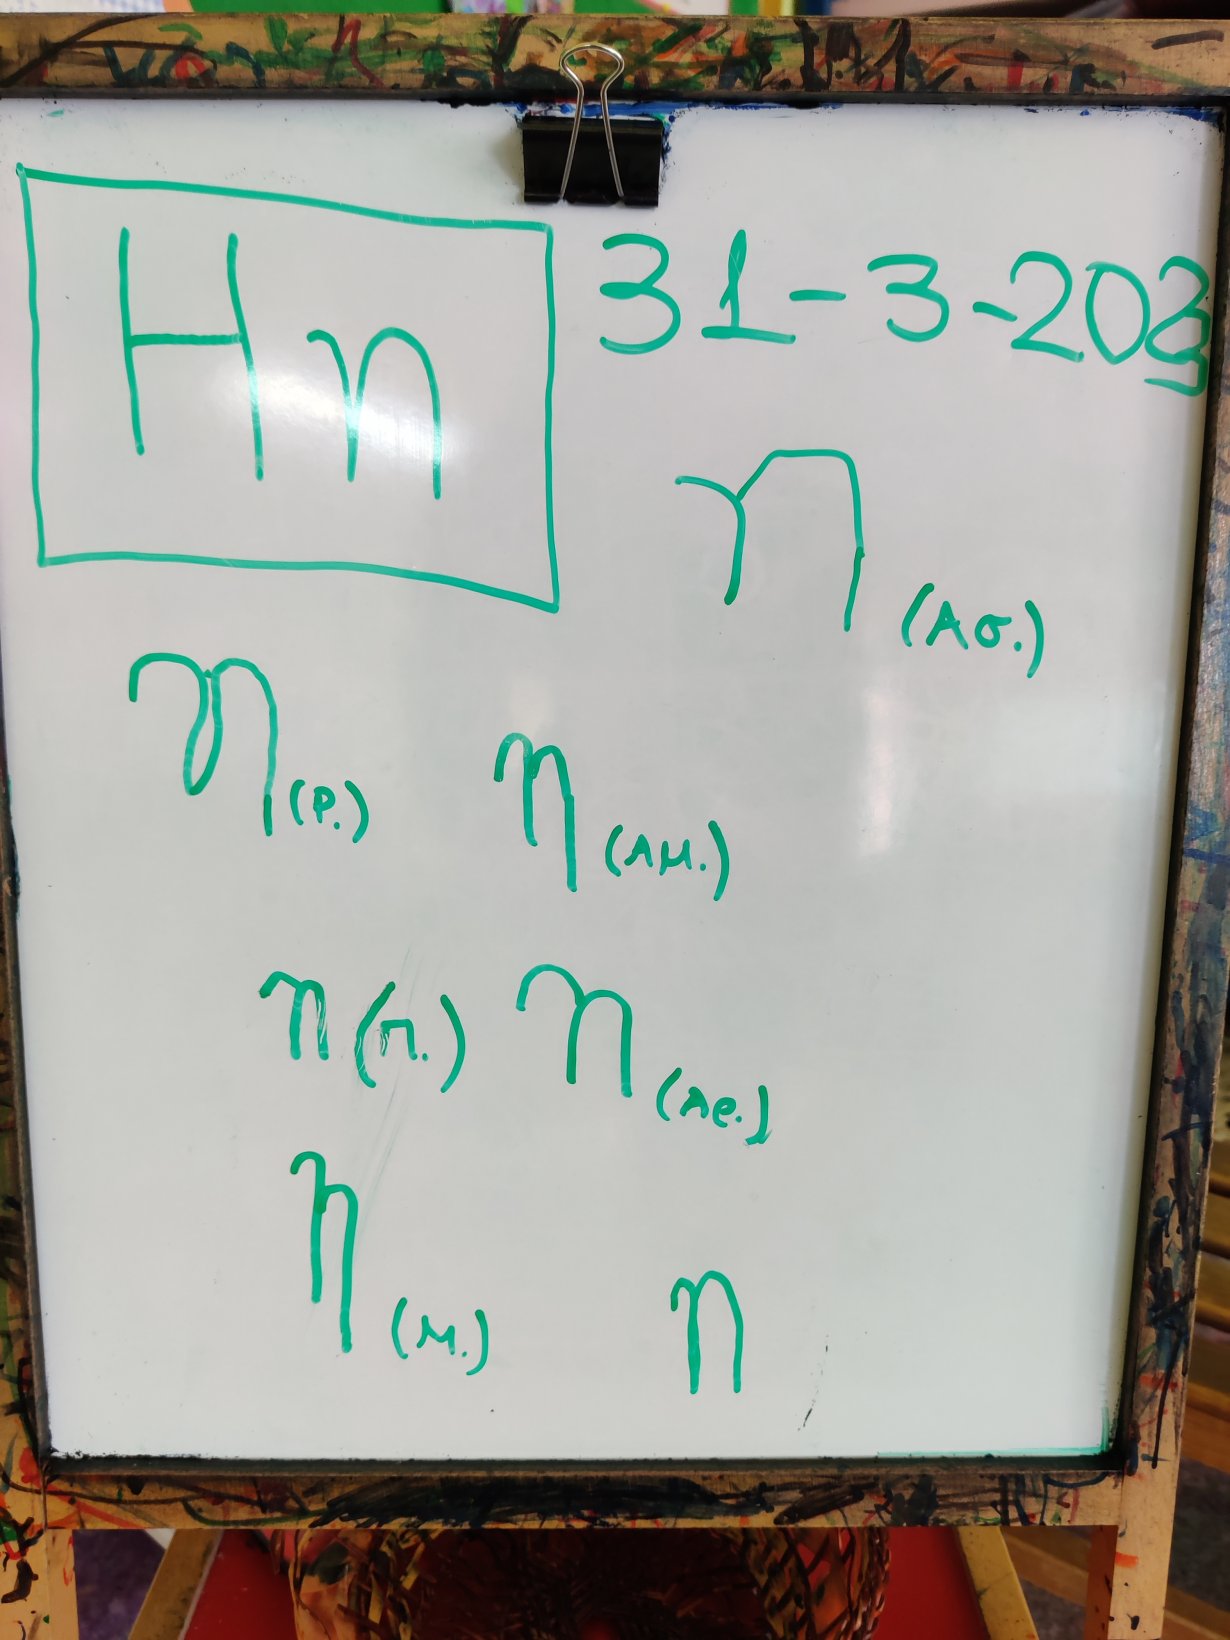 Ηη 31-3-2023
η (Ασ.)
η (Ρ.)
η (Αμ.)
η (π.) η (Αе.)
η (μ.)
η